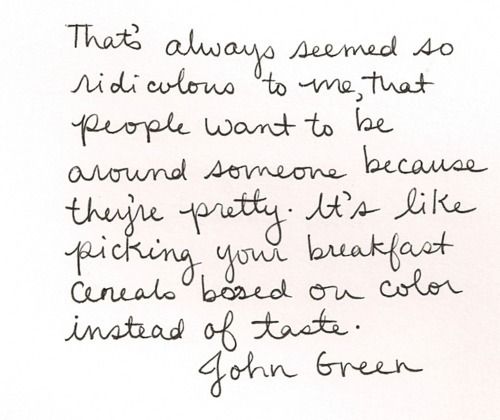 That's always seemed so
ridiculous to me, that
people want to be
around someone because
they're pretty. It's like
picking your breakfast
cereals based on color
instead of taste.
John Green